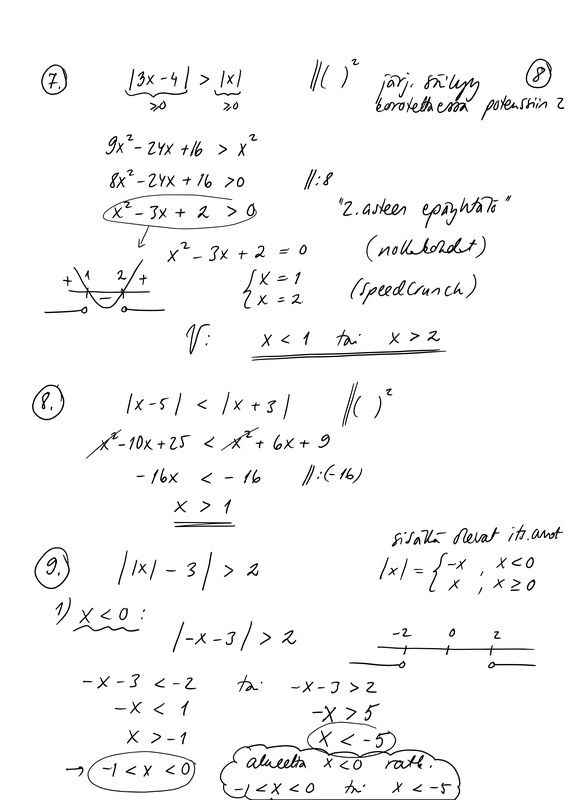 7. |3x-4| > |x| ||( )² järj. säilyy 8
≥0 ≥0 korotettaessa potenssiin 2
9x²-24x+16 > x²
8x²-24x+16 >0 ||:8
x²-3x+2 >0 "2.asteen epäyhtälö"
x²-3x+2 = 0 (nollakohdat)
+ 1 - 2 + {x = 1 x = 2 (SpeedCrunch)
V: x < 1 tai x > 2
8. |x-5| < |x+3| ||( )²
x²-10x+25 < x²+6x+9
-16x < -16 ||:(-16)
x > 1
sisällä olevat its.arvot
9. ||x|-3| > 2 |x| = {-x , x<0
x , x≥0
1) x<0:
|-x-3| > 2 -2 0 2
-x-3 < -2 tai -x-3 > 2
-x < 1 -x > 5
x > -1 x < -5
→ -1 < x < 0 alueelta x<0 ratk.
-1<x<0 tai x < -5